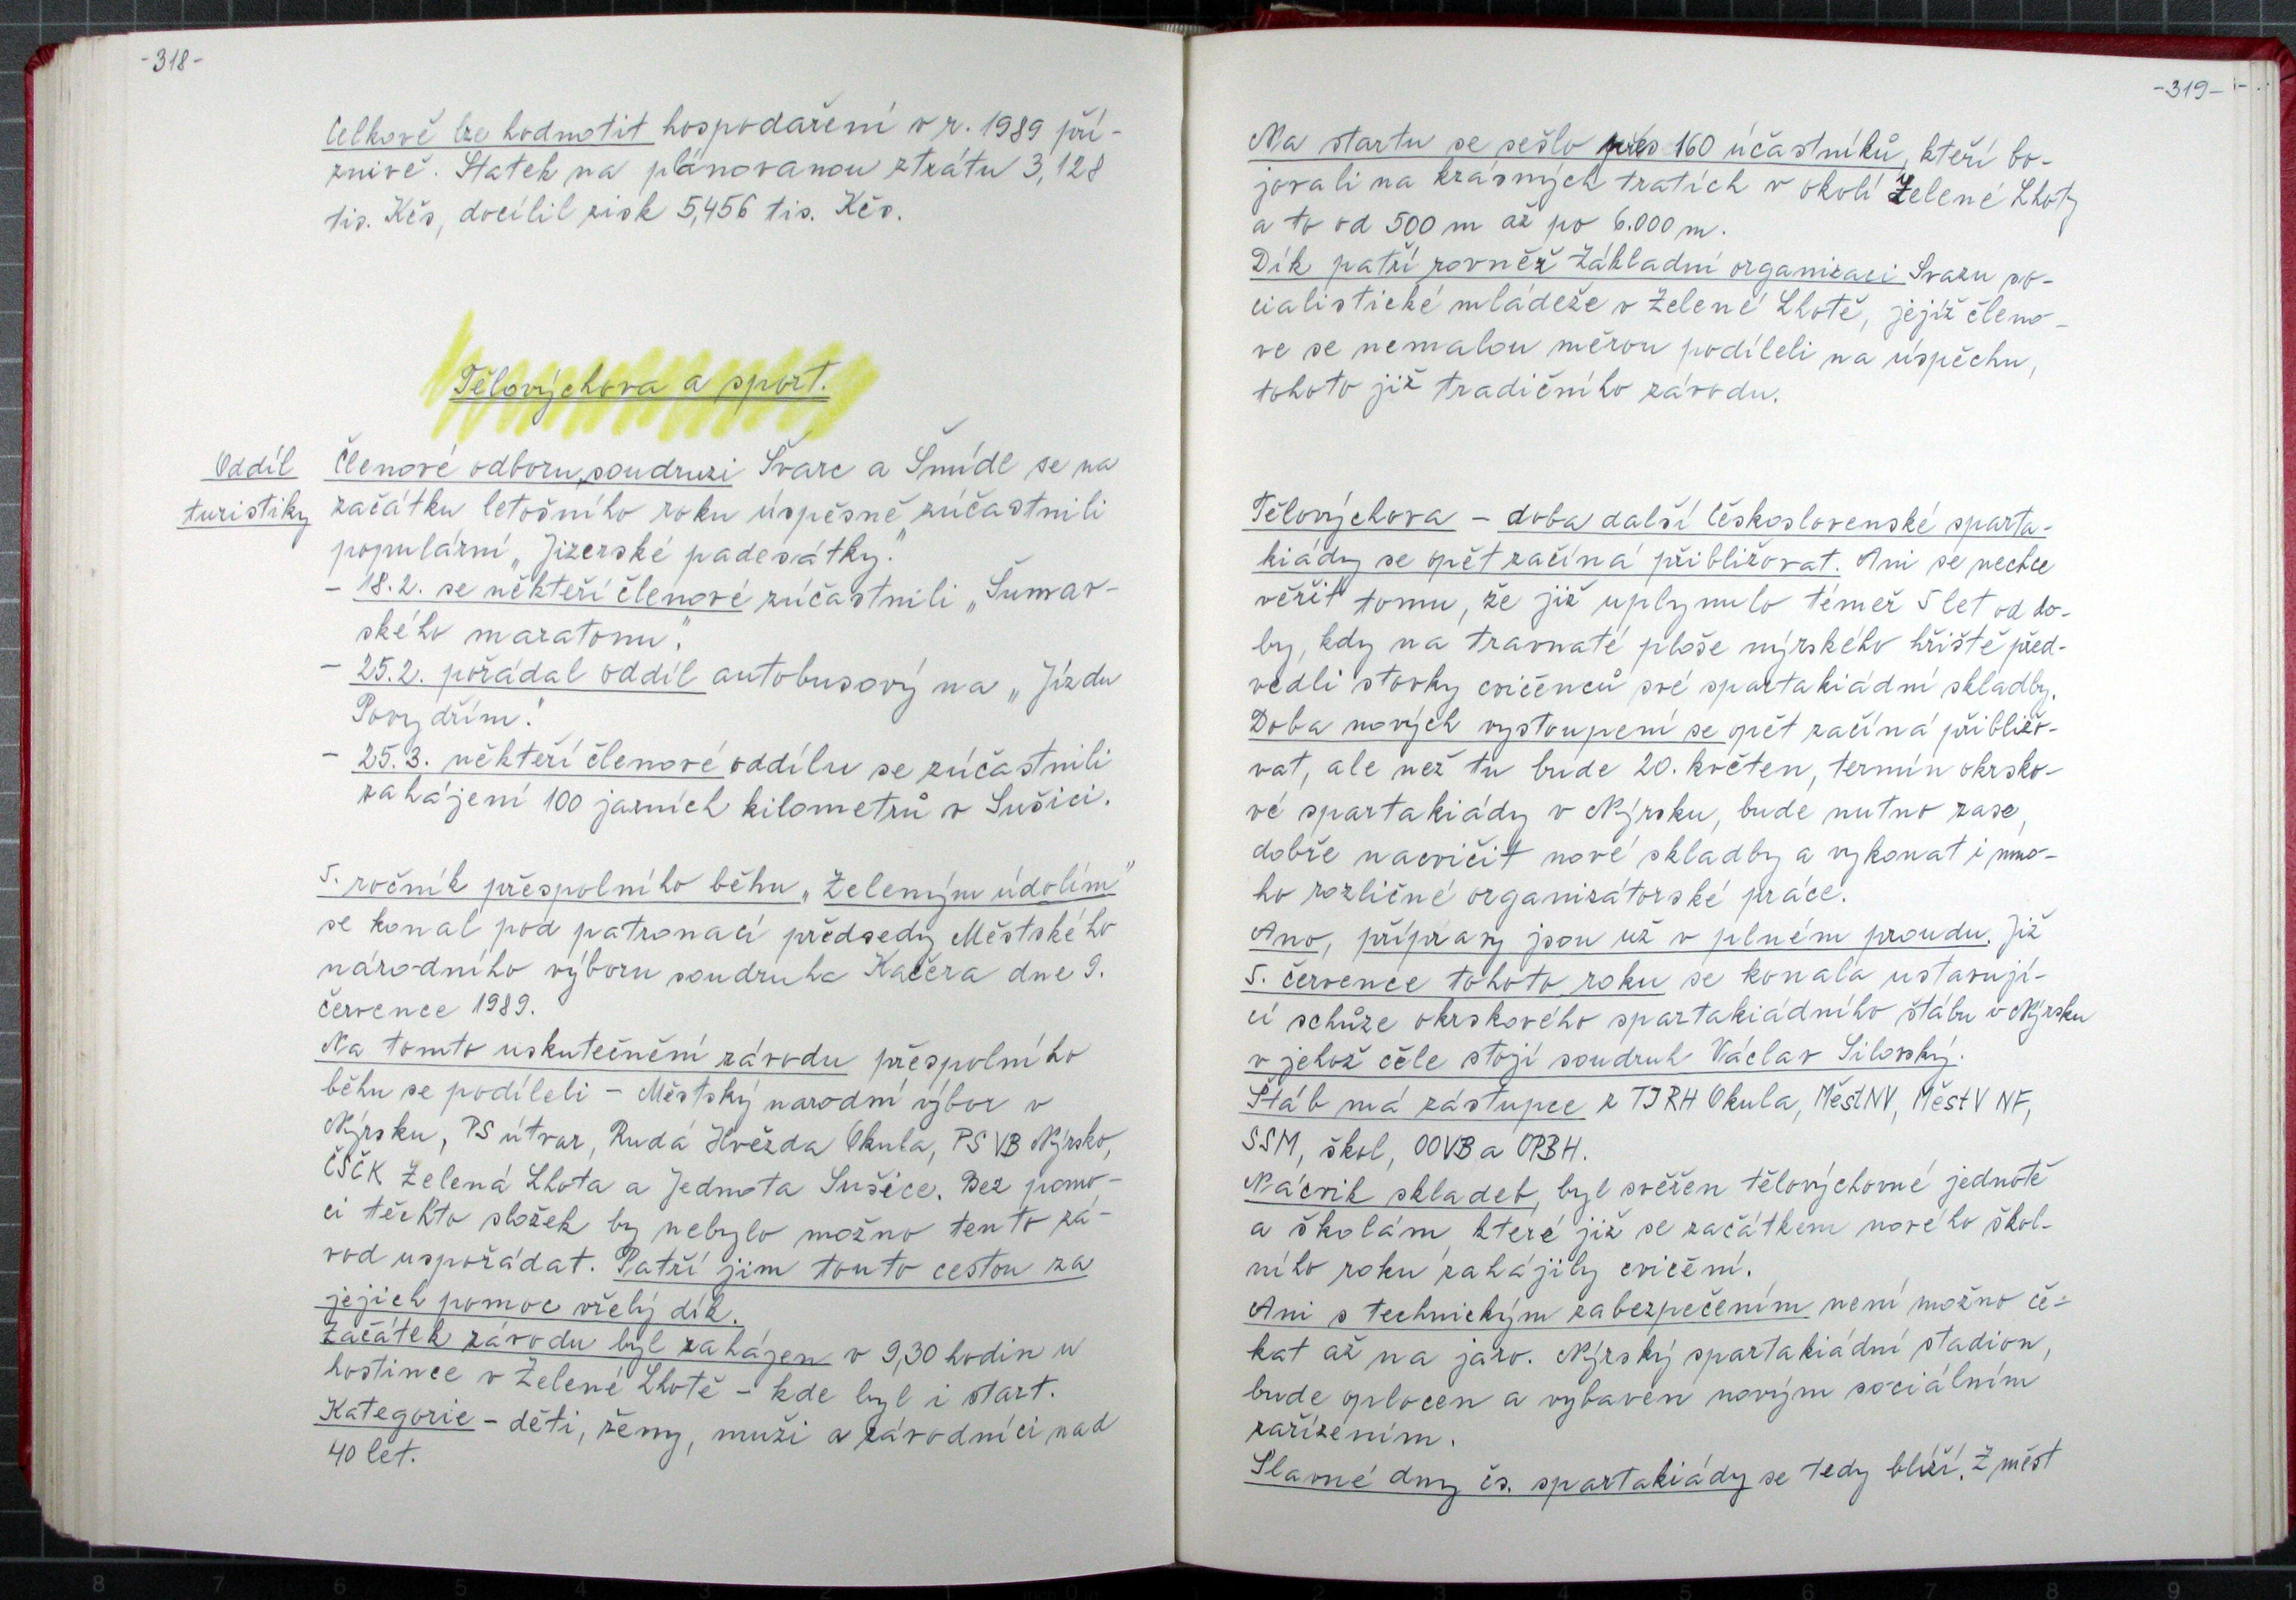 -318-
Celkově lze hodnotit hospodaření v r. 1989 pří-
znivě. Statek na plánovanou ztrátu 3,128
tis. Kčs, docílil zisk 5,456 tis. Kčs.
Tělovýchova a sport.
Oddíl
turistiky
Členové odboru, soudruzi Švarc a Šmídl se na
začátku letošního roku úspěsně zúčastnili
populární „Jizerské padesátky."
- 18.2. se někteří členové zúčastnili „Šumav-
ského maratonu."
- 25.2. pořádal oddíl autobusový na „Jízdu
Povydřím."
- 25.3. někteří členové oddílu se zúčastnili
zahájení 100 jarních kilometrů v Sušici.
5. ročník přespolního běhu „Zeleným údolím"
se konal pod patronací předsedy Městského
národního výboru soudruha Kačera dne 9.
července 1989.
Na tomto uskutečnění závodu přespolního
běhu se podíleli - Městský narodní výbor v
Nýrsku, PS útvar, Rudá Hvězda Okula, PS VB Nýrsko,
ČSČK Zelená Lhota a Jednota Sušice. Bez pomo-
ci těchto složek by nebylo možno tento zá-
vod uspořádat. Patří jim touto cestou za
jejich pomoc vřelý dík.
Začátek závodu byl zahájen v 9,30 hodin u
hostince v Zelené Lhotě - kde byl i start.
Kategorie - děti, ženy, muži a závodníci nad
40 let.
-319-
Na startu se sešlo přes 160 účastníků, kteří bo-
jovali na krásných tratích v okolí Zelené Lhoty
a to od 500 m až po 6.000 m.
Dík patří rovněž Základní organizaci Svazu so-
cialistické mládeže v Zelené Lhotě, jejíž členo-
ve se nemalou měrou podíleli na úspěchu,
tohoto již tradičního závodu.
Tělovýchova - doba další Československé sparta-
kiády se opět začíná přibližovat. Ani se nechce
věřit tomu, že již uplynulo téměř 5 let od do-
by, kdy na travnaté ploše nýrského hřiště před-
vedli stovky cvičenců své spartakiádní skladby.
Doba nových vystoupení se opět začíná přibližo-
vat, ale než tu bude 20. květen, termín okrsko-
vé spartakiády v Nýrsku, bude nutno zase,
dobře nacvičit nové skladby a vykonat i mno-
ho rozličné organizátorské práce.
Ano, přípravy jsou už v plném proudu. Již
5. července tohoto roku se konala ustavují-
cí schůze okrskového spartakiádního štábu v Nýrsku
v jehož čele stojí soudruh Václav Silovský.
Štáb má zástupce z TJRH Okula, MěstNV, MěstV NF,
SSM, škol, OOVB a OPBH.
Nácvik skladeb, byl svěřen tělovýchovné jednotě
a školám, které již se začátkem nového škol-
ního roku zahájily cvičení.
Ani s technickým zabezpečením není možno če-
kat až na jaro. Nýrský spartakiádní stadion,
bude oplocen a vybaven novým sociálním
zařízením.
Slavné dny čs. spartakiády se tedy blíží. Z měst